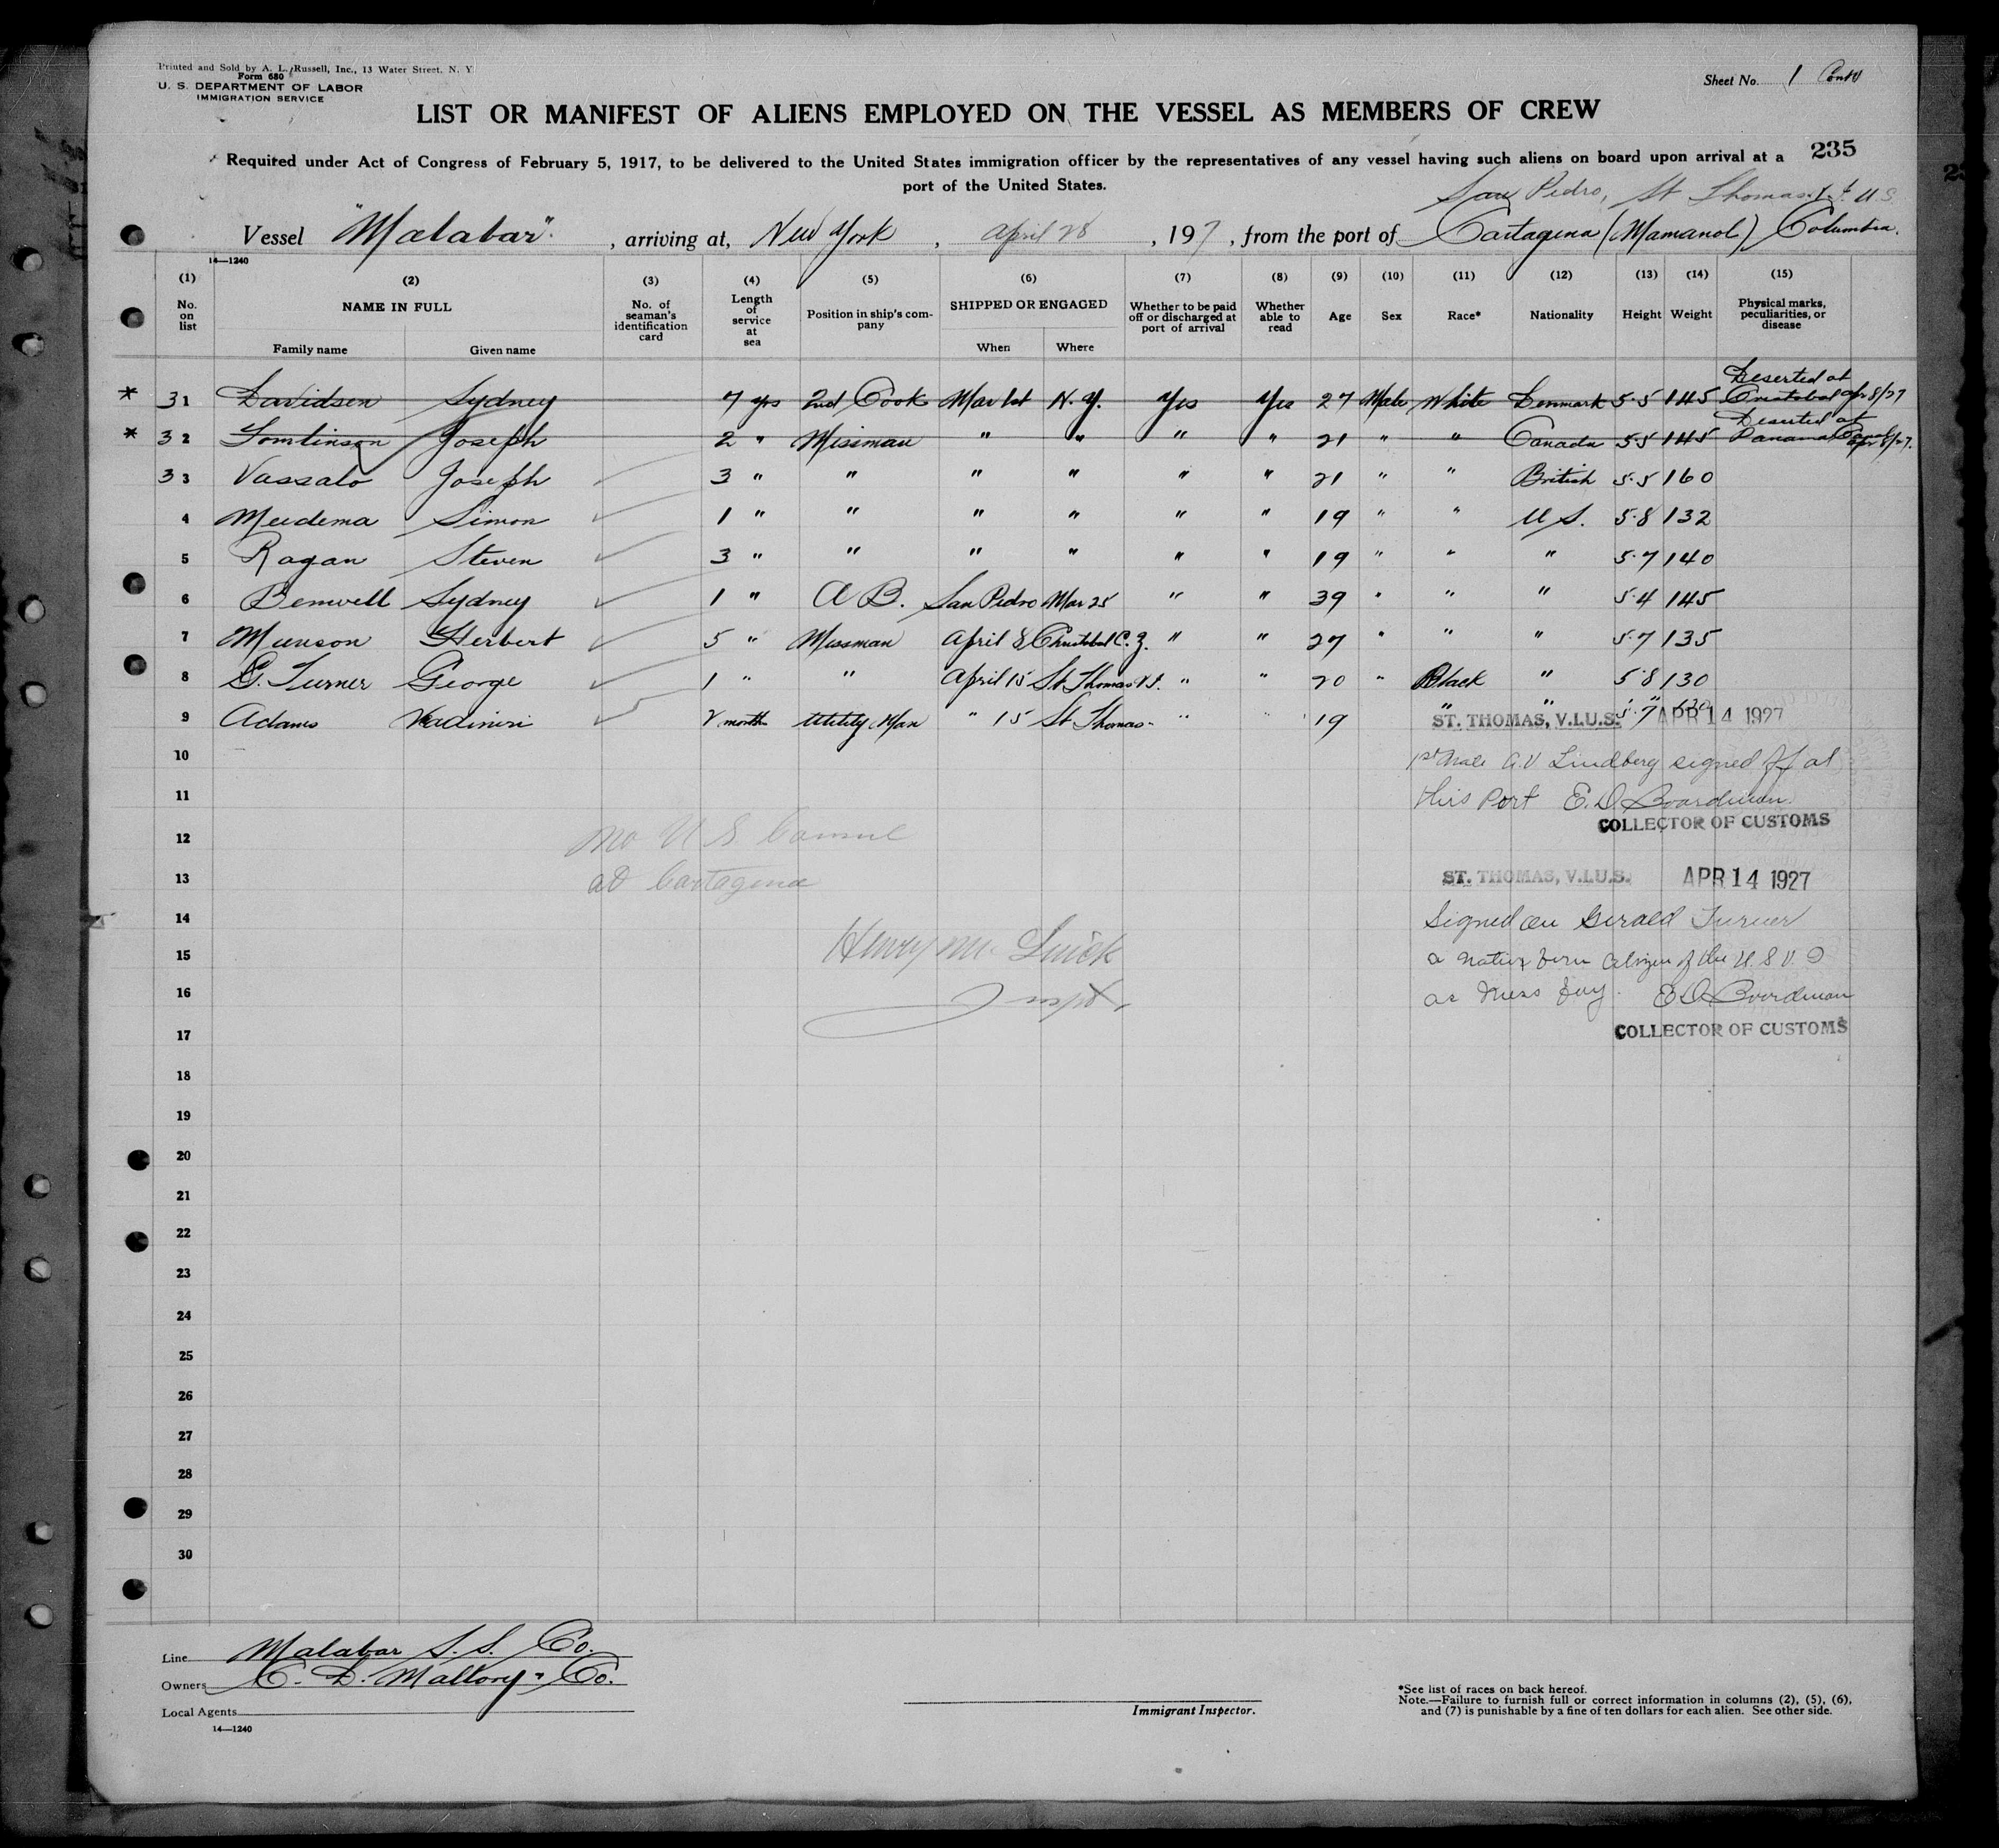 Printed and Sold by A. L. Russell, Inc., 13 Water Street, N. Y
Form 680
U. S. DEPARTMENT OF LABOR
IMMIGRATION SERVICE
Sheet No. 1 Contd
LIST OR MANIFEST OF ALIENS EMPLOYED ON THE VESSEL AS MEMBERS OF CREW
235
Required under Act of Congress of February 5, 1917, to be delivered to the United States immigration officer by the representatives of any vessel having such aliens on board upon arrival at a
port of the United States.
San Pedro, St Thomas V.I. U.S.
Vessel "Malabar", arriving at, New York, April 28, 197, from the port of Cartagena (Mamanol) Columbia.
14—1240
(1) (2) (3) (4) (5) (6) (7) (8) (9) (10) (11) (12) (13) (14) (15)
No. on list
NAME IN FULL
Family name
Given name
No. of seaman's identification card
Length of service at sea
Position in ship's company
SHIPPED OR ENGAGED
When
Where
Whether to be paid off or discharged at port of arrival
Whether able to read
Age
Sex
Race*
Nationality
Height
Weight
Physical marks, peculiarities, or disease
* 31 Davidsen Sydney 7 yrs 2nd Cook Mar 1st N.Y. Yes Yes 27 Male White Denmark 5.5 145 Deserted at Cristobal Apr 8/27
* 32 Tomlinson Joseph 2 " Messman " " " " 21 " " Canada 5.5 145 Deserted at Panama Canal Apr 8/27.
33 Vassalo Joseph 3 " " " " " " 21 " " British 5.5 160
4 Meedema Simon 1 " " " " " " 19 " " U S. 5.8 132
5 Ragan Steven 3 " " " " " " 19 " " " 5.7 140
6 Bemwell Sydney 1 " A B. San Pedro Mar 25 " " 39 " " " 5.4 145
7 Munson Herbert 5 " Messman April 8 Christobal C.Z. " " 27 " " " 5.7 135
8 G. Turner George 1 " " April 15 St Thomas V.I. " " 20 " Black " 5.8 130
9 Adams 2 month Utility Man " 15 St Thomas " " 19 " " 5.7
ST. THOMAS, V.I.U.S. APR 14 1927
10
1st Mate A.V Lindberg signed off at
11
this Port E.D. Boardman
COLLECTOR OF CUSTOMS
12
No U S Consul
13
at Cartagena
ST. THOMAS, V.I.U.S. APR 14 1927
14
Signed on Gerald Turner
15
Henry Mc
a native born citizen of the U. S V. I
16
Inspt.
as mess boy. E.D. Boardman
17
COLLECTOR OF CUSTOMS
18
19
20
21
22
23
24
25
26
27
28
29
30
Line Malabar S. S. Co.
Owners C. D. Mallory & Co.
Local Agents
14—1240
Immigrant Inspector.
*See list of races on back hereof.
Note.—Failure to furnish full or correct information in columns (2), (5), (6),
and (7) is punishable by a fine of ten dollars for each alien. See other side.